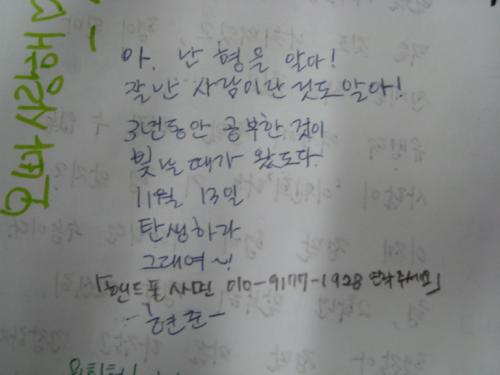 아. 난 형을 알아!
잘난 사람이란 것도 알아!
3년동안 공부한 것이
빛날때가 왔도다.
11월 13일
탄생하라
그대여~!
「핸드폰 사면 010-9177-1928 연락주세요」
-현준-